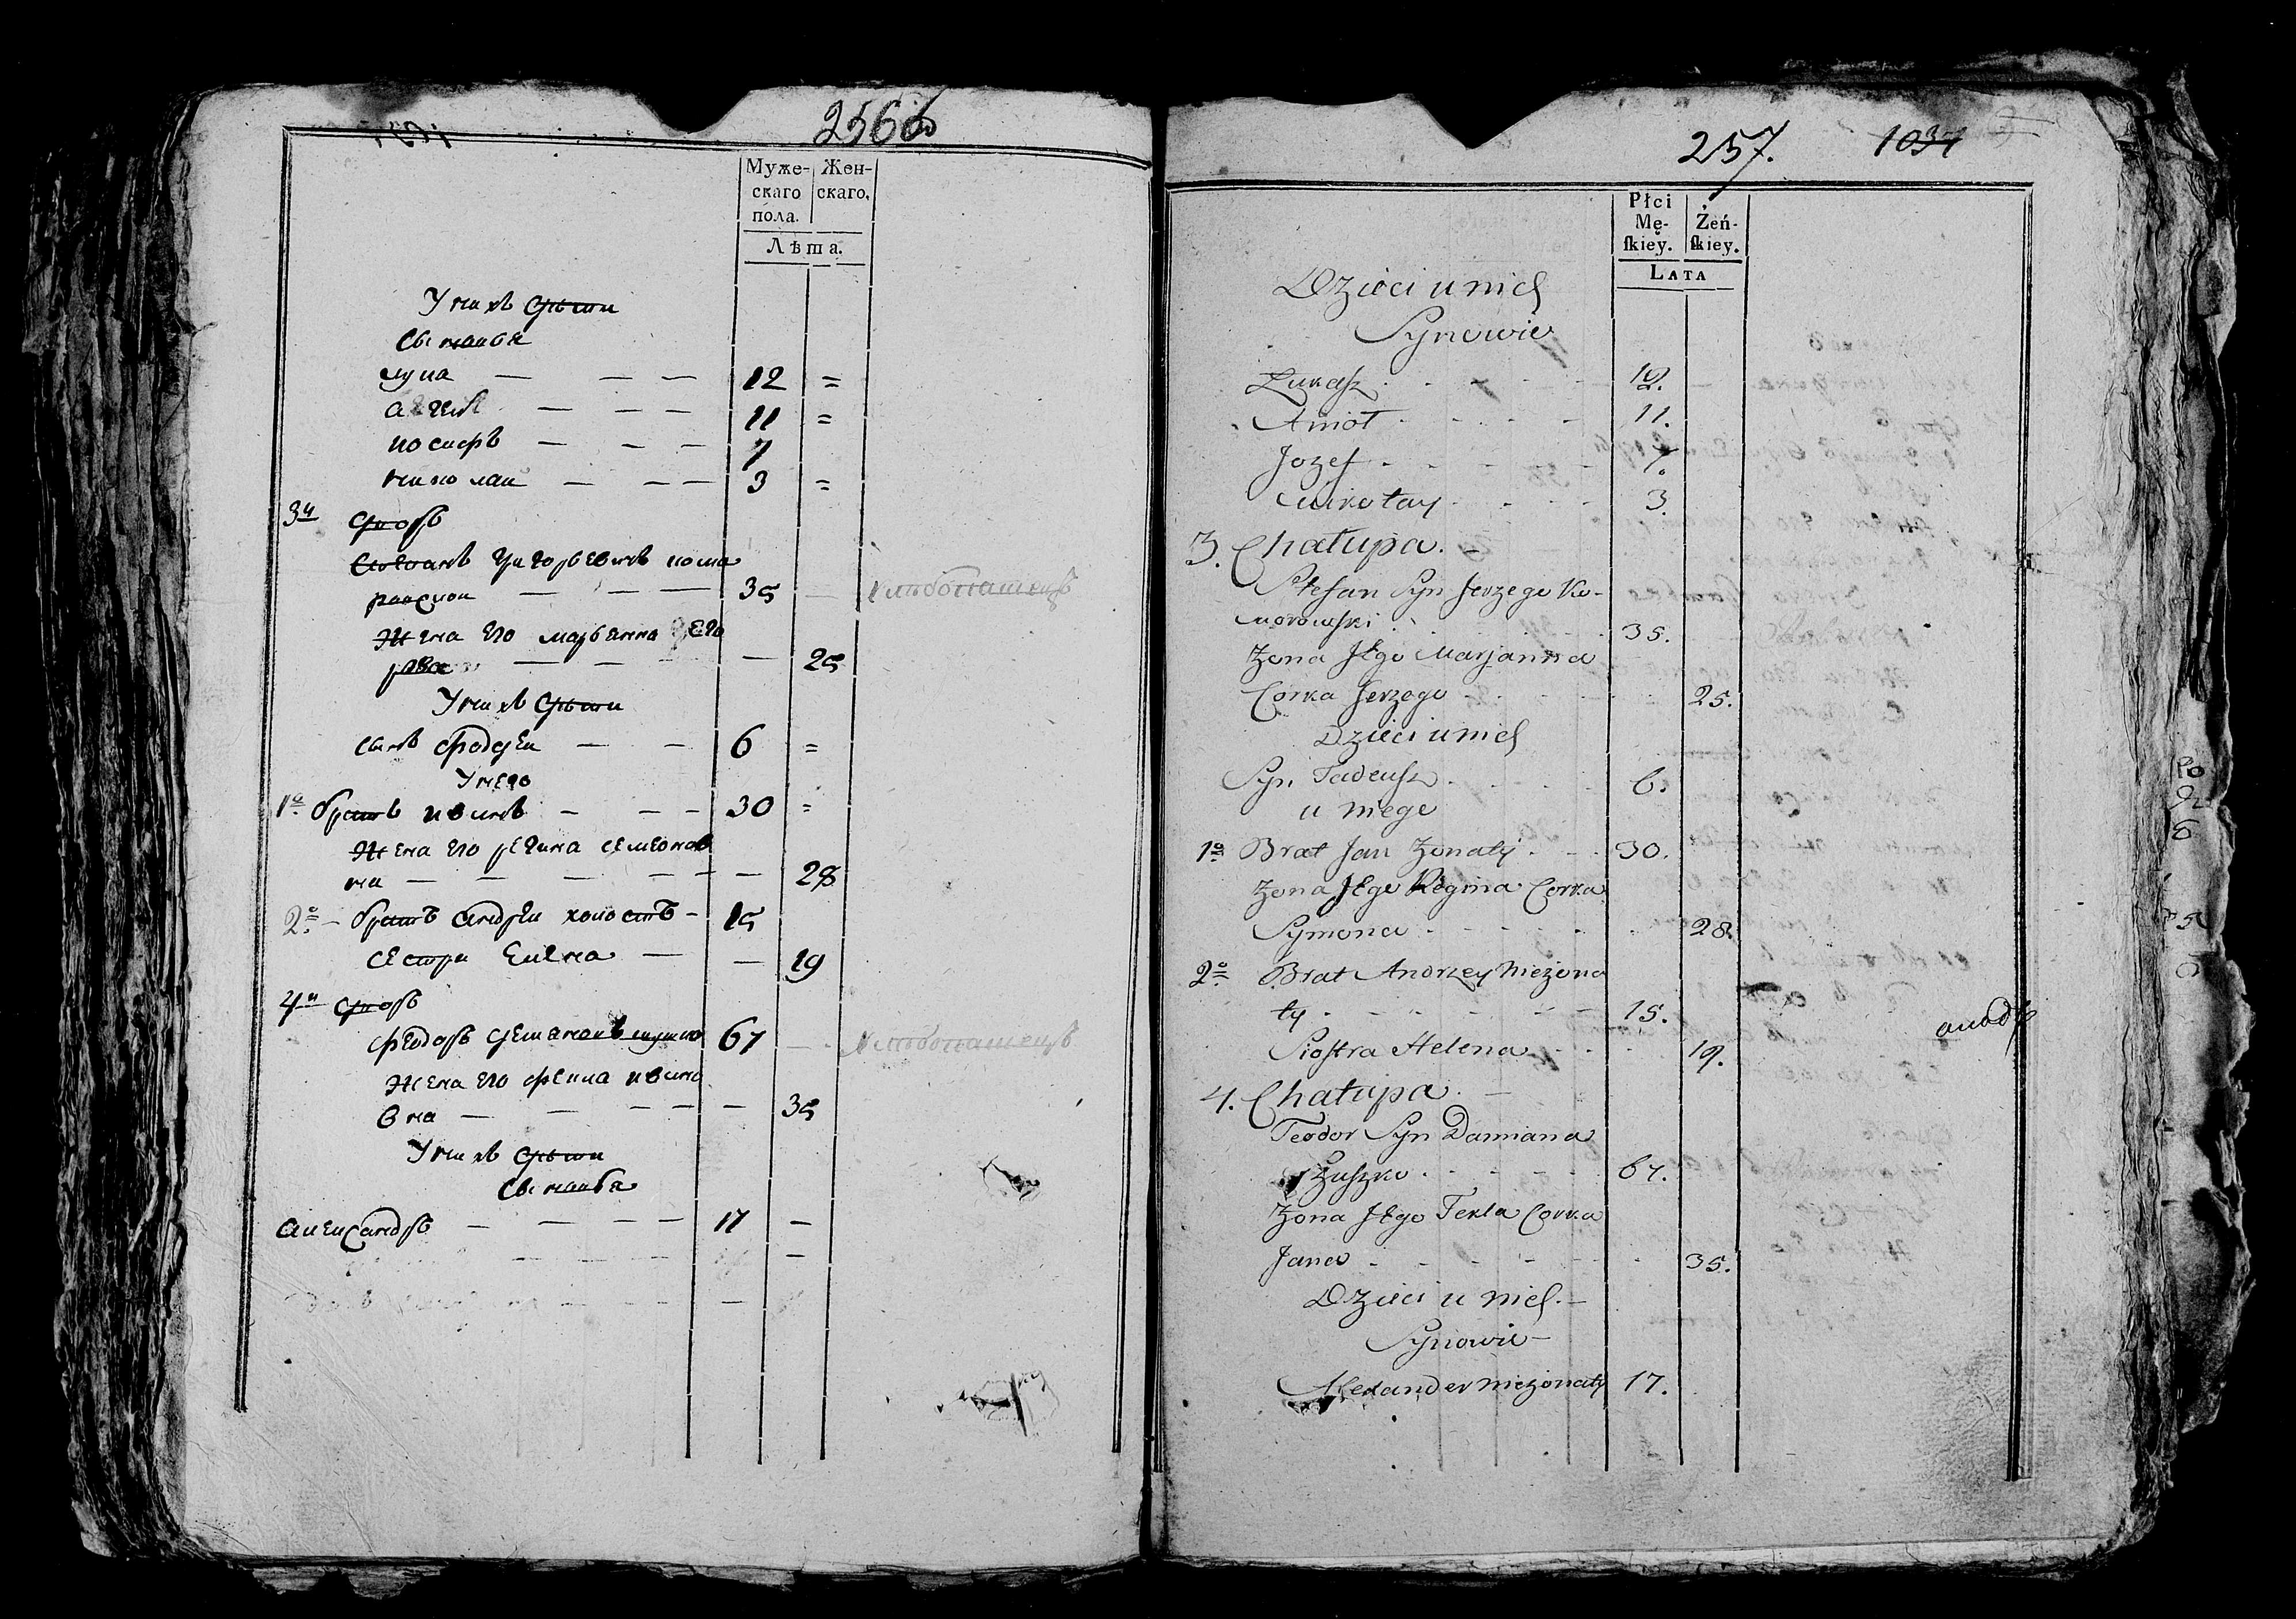 256б
Муже- Жен-
скаго скаго.
пола.
Лѣта.
У нихъ дѣти
Сыновья
лука — — — 12 =
11 =
иосифъ — — — 7
николай — — — 3 =
3й дворъ
Степанъ григорьевичъ кома
ровскои — — — 35 —
Жена его марьанна Его
рова — — — 25
У нихъ дѣти
сынъ фадеи — — 6 =
У него
1й братъ иванъ — — — 30 =
Жена его регина семионов
на — — — — — 28
2й — братъ андреи холостъ — 15
сестра Елена — — 19
4й дворъ
феодоръ демиановъ 67 —
Жена его фекла ивано
вна — — — — — 35
У нихъ дѣти
Сыновья
александръ — — — — 17 —
257. 1037
Płci
Mę- Żeń-
ſkiey. ſkiey.
LATA
Dzieci u nich
Synowie
Łukasz 12.
Amot 11.
Jozef 7.
Mikołay 3.
3. Chałupa.
Stefan Syn Jerzego Ko-
morowski 35.
Zona Jego Marjanna
Corka Jerzego 25.
Dzieci u nich
Syn Tadeusz 6.
u niego
1o Brat Jan Zonaty 30.
Zona Jego Regina Corka
Symona 28.
2o Brat Andrzey niezona
ty 15.
Siostra Helena 19.
4. Chałupa.
Teodor Syn Damiana
Żuszko 67.
Zona Jego Tekla Corka
Jana 35.
Dzieci u nich.—
Synowie—
Alexander niezonaty 17.